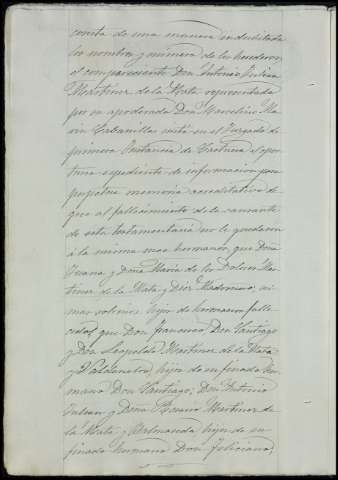 consta de una manera indubitada
los nombres y número de los herederos
el compareciente Don Antonio Julian
Martinez de la Mata representado
por su apoderado Don Marcelino Ma
rin Cabanillas instó en el Juzgado de
primera Instancia de el opor
tuno expediente de informacion para
perpetua memoria acreditativo de
que al fallecimiento de la causante
de esta testamentaria no le quedaron
á la misma mas hermanos que Doña
Juana y Doña Maria de los Dolores Mar
tinez de la Mata y Diez Madroñero; ni
mas sobrinos hijos de hermanos falle
cidos que Don Francisco, Don Santiago
y Don Leopoldo Martinez de la Mata
y hijos de su finado her
mano Don Santiago; Don Antonio
Julian y Doña Martinez de
la Mata y hijos de su
finado hermano Don Feliciano;